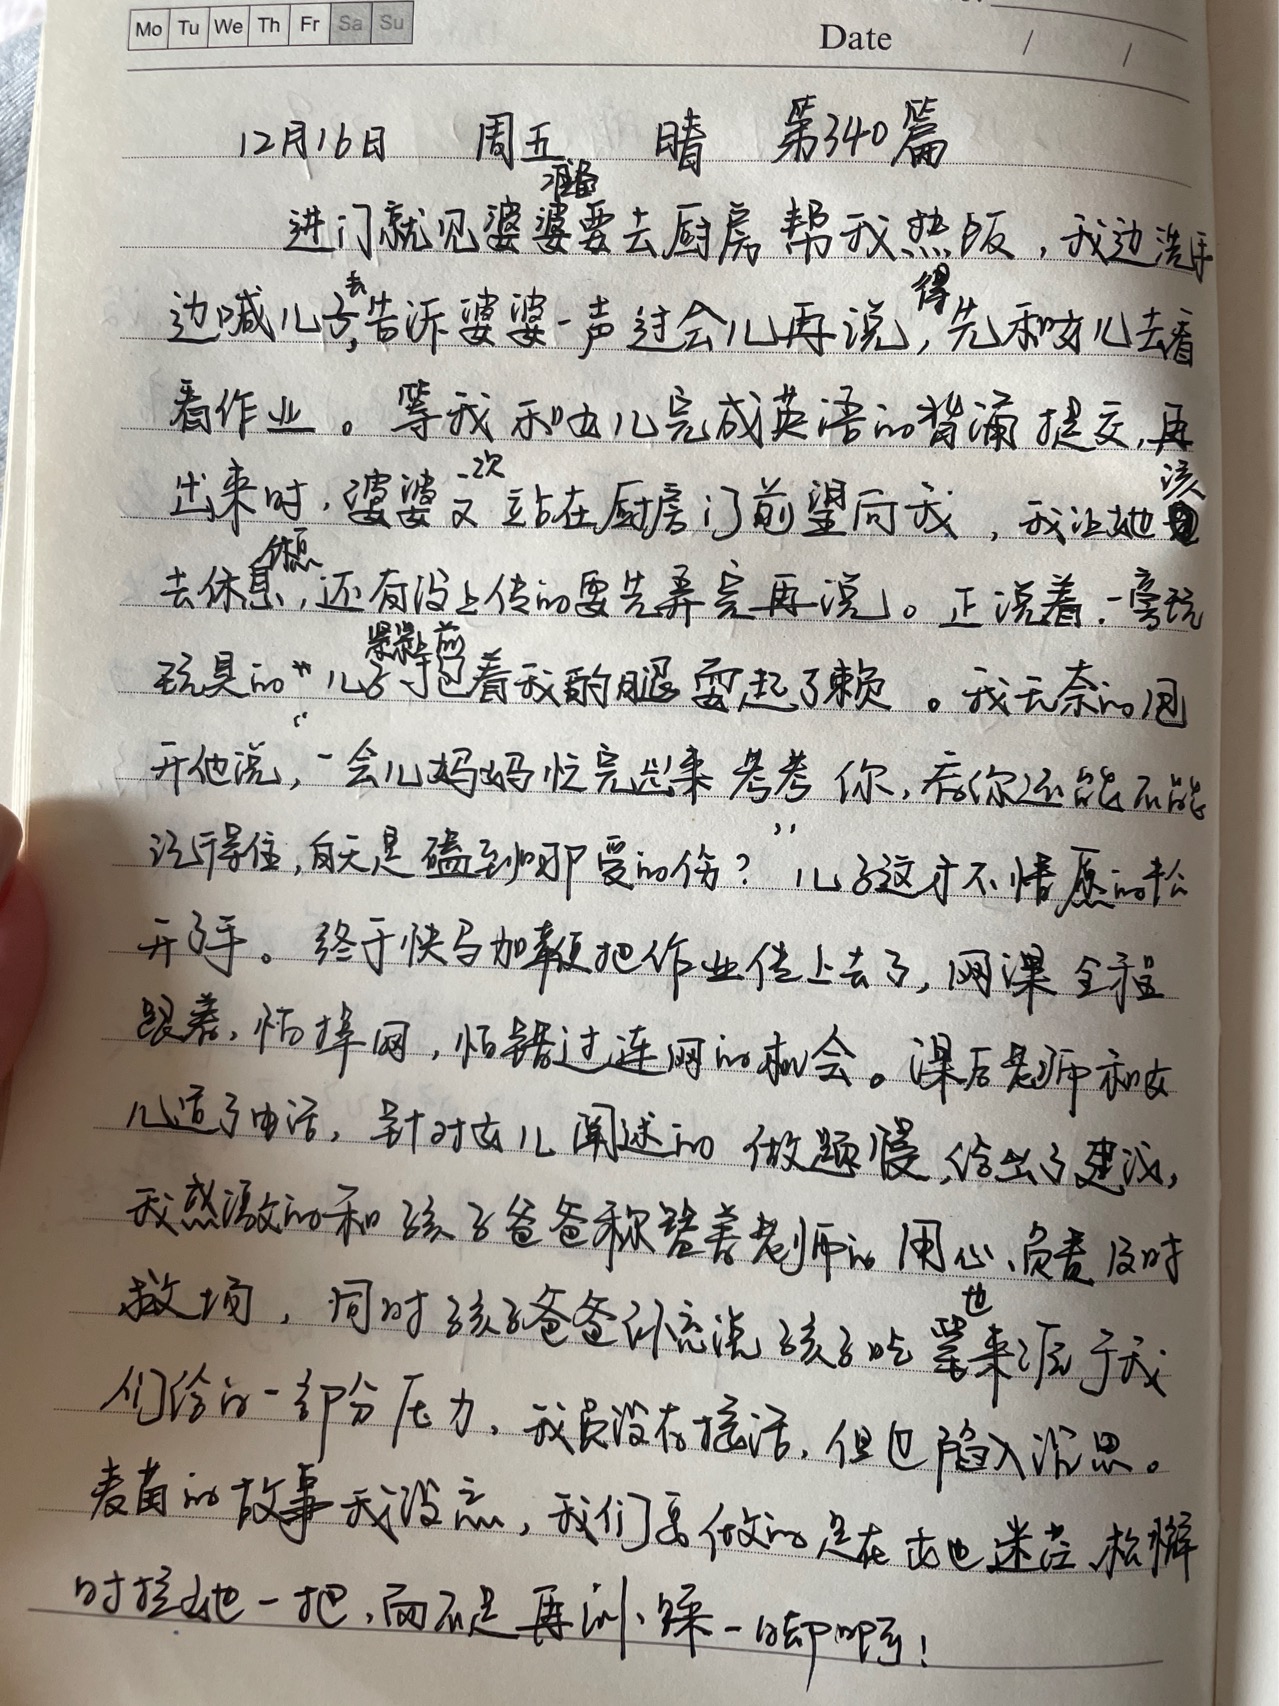 Mo Tu We Th Fr Sa Su
Date / /
12月16日 周五 晴 第340篇
进门就见婆婆准备要去厨房帮我热饭，我边洗手
边喊儿子去告诉婆婆一声过会儿再说，得先和女儿去看
看作业。等我和女儿完成英语的背诵提交，再
出来时，婆婆又一次站在厨房门前望向我，我让她该
去休息休息，还有没上传的要先弄完再说。正说着，一旁玩
玩具的儿子上前抱着我的腿耍起了赖。我无奈的甩
开他说，“一会儿妈妈忙完出来考考你，看你还能不能
记得住，白天是磕到哪受的伤？”儿子这才不情愿的松
开了手。终于快马加鞭把作业传上去了，网课全程
跟着，怕掉网，怕错过连网的机会。课后老师和女
儿通了电话，针对女儿阐述的做题慢，给出了建议，
我感激的和孩子爸爸称赞着老师的用心、负责及时
救场，同时孩子爸爸补充说孩子吃也来源于我
们给的一部分压力，我虽没有接话，但也陷入沉思。
麦苗的故事我没忘，我们要做的是在她迷茫、松懈
时拉她一把，而不是再训、踩一脚啊！